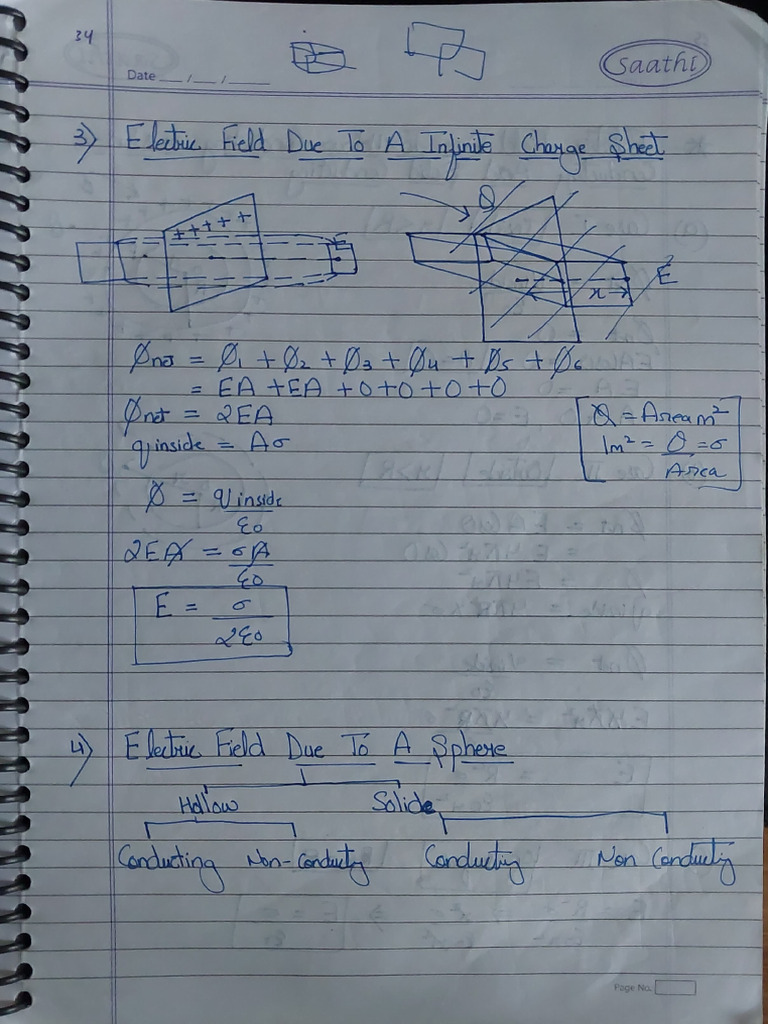 34
Date __/__/__
Saathi
3) Electric Field Due To A Infinite Charge Sheet
+ + + + +
Q
E
x
Ø net = Ø1 + Ø2 + Ø3 + Ø4 + Ø5 + Ø6
= EA + EA + 0 + 0 + 0 + 0
Ø net = 2EA
q inside = Aσ
Q = Area m²
1m² = Q/Area = σ
Ø = q inside/ε0
2EA = σA/ε0
E = σ/2ε0
4) Electric Field Due To A Sphere
Hollow Solide
Conducting Non-Conducty Conducty Non Conducty
Page No.